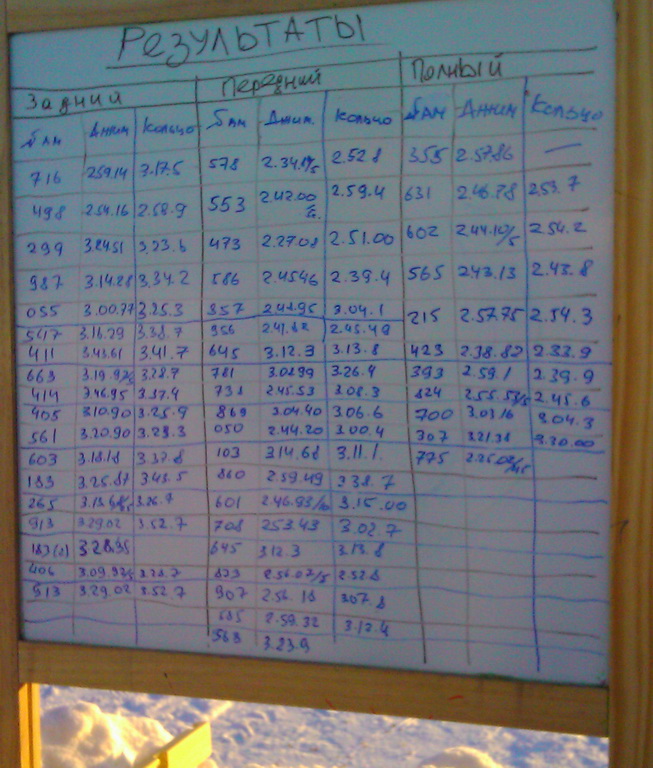 Результаты
Задний Передний Полный
№ АМ Джим Кольцо № АМ Джим. Кольцо № АМ Джим Кольцо
716 2.59.14 3.17.5 578 2.52.8 355 2.57.86 —
498 2.54.16 2.58.9 553 2.42.00 2.59.4 631 2.53.7
299 473 2.27.08 2.51.00 602 2.54.2
987 3.14.28 3.34.2 586 2.45.46 2.39.4 565 2.43.13 2.43.8
055 3.00.77 3.25.3 357 2.48.95 3.04.1 215 2.57.75 2.54.3
547 3.16.29 3.38.7 956 2.41.82 2.45.49
411 3.43.61 3.41.7 645 3.12.3 3.13.8 423 2.38.82 2.33.9
663 3.28.7 781 3.02.99 3.26.4 393 2.59.1 2.39.9
414 3.46.95 3.37.4 738 2.45.53 3.08.3 824 2.45.6
405 3.10.90 3.25.9 869 3.04.40 3.06.6 700 3.03.16 3.04.3
561 3.20.90 3.29.3 050 2.44.20 3.00.4 307 3.20.00
603 3.18.18 3.37.8 103 3.14.68 3.11.1. 775
183 3.25.87 3.43.5 860 2.59.49 3.38.7
265 601 3.15.00
913 3.29.02 3.52.7 708 2.53.43 3.02.7
183(2) 3.28.95 645 3.12.3 3.13.8
406 3.28.7 873 2.52.8
913 3.29.02 3.52.7 907 2.56.18 3.07.8
685 2.59.32 3.12.4
568 3.23.9